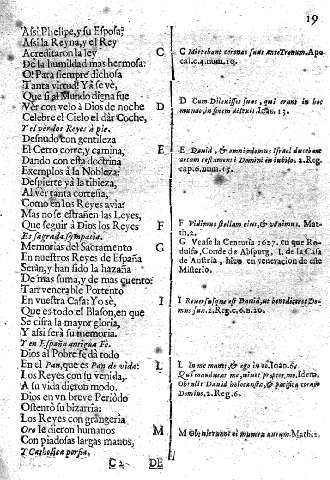 19
Assi Phelipe, y su Esposa?
Assi la Reyna, y el Rey
Acreditaron la ley
De la humildad mas hermosa:
O! Para siempre dichosa
Tanta virtud! Ya se vè,
Que si al Mundo digna fue
Ver con velo à Dios de noche
Celebre el Cielo el dàr Coche,
Y el vèr dos Reyes à pie.
Desnudo con gentileza
El Cetro corre, y camina,
Dando con esta doctrina
Exemplos à la Nobleza:
Despierte yà la tibieza,
Al ver tanta corteria,
Como en los Reyes avia?
Mas no se estrañen las Leyes,
Que seguir à Dios los Reyes
Es sagrada
Memorias del Sacramento
En nuestros Reyes de España
Seràn, y han sido la hazaña
De mas suma, y de mas cuento:
Tan venerable Portento
En vuestra Casa: Yo sè,
Que es todo el Blason, en que
Se cifra la mayor gloria,
Y assi serà su memoria.
Y en España antigua Fè.
Dios al Pobre se dà todo
En el Pan, que es Pan de vida:
Los Reyes con su venida,
A su vida dieron modo.
Dios en vn breve Periòdo
Ostentò su bizarria:
Los Reyes con grangerìa
Oro le dieron humanos
Con piadosas largas manos,
Y Catholica porfia.
C 2 DE
C
D
E
F
G
I
L
M
C Mittebant coronas suas ante Tronum. Apo
cal. c. 4. num. 10.
D Cum Dilexisset suos, qui erant in hoc
mundo, in finem dilexit Ioan. 13.
E David, & omnis domus Israel ducebant
arcam testamenti Domini in iubilo. 2. Reg.
cap. 6. num. 15.
F Vidimus stellam eius, & venimus. Mat
th. 2.
G Vease la Centuria 1627. en que Ro-
dulfo, Conde de Abspurg, I. de la Casa
de Austria, hizo en veneracion de este
Misterio.
I Reversusque est David, ut benediceret Do-
mui suæ. 2. Reg. c. 6. n. 20.
L In me manet, & ego in eo. Ioan. 6.
Qui manducat me, vivet propter me. Idem.
Obtulit David holocausta, & pacifica coram
Domino. 2. Reg. 6.
M Obtulerunt ei munera aurum. Math. 2.